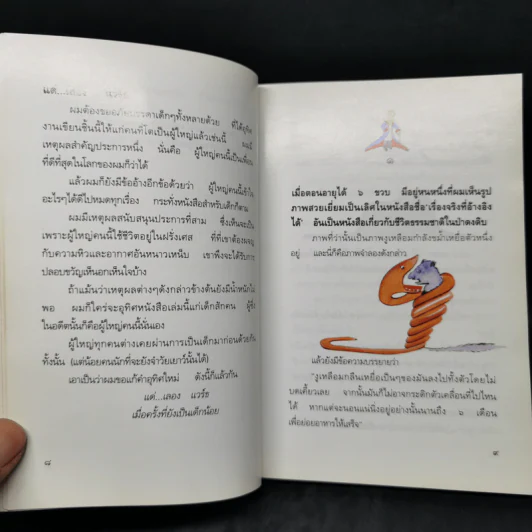 แด่...เลออง แวร์ธ
ผมต้องขออภัยบรรดาเด็กๆทั้งหลายด้วย ที่ได้อุทิศ
งานเขียนชิ้นนี้ให้แก่คนที่โตเป็นผู้ใหญ่แล้วเช่นนี้ ผมมี
เหตุผลสำคัญประการหนึ่ง นั่นคือ ผู้ใหญ่คนนี้เป็นเพื่อน
ที่ดีที่สุดในโลกของผมก็ว่าได้
แล้วผมก็ยังมีข้ออ้างอีกข้อด้วยว่า ผู้ใหญ่คนนี้เข้าใจ
อะไรๆได้ไปหมดทุกเรื่อง กระทั่งหนังสือสำหรับเด็กก็ตาม
ผมมีเหตุผลสนับสนุนประการที่สาม ซึ่งเห็นจะเป็น
เพราะผู้ใหญ่คนนี้ใช้ชีวิตอยู่ในฝรั่งเศส ที่ที่เขาต้องผจญ
กับความหิวและอากาศอันหนาวเหน็บ เขาพึงจะได้รับการ
ปลอบขวัญเห็นอกเห็นใจบ้าง
ถ้าแม้นว่าเหตุผลต่างๆดังกล่าวข้างต้นยังมีน้ำหนักไม่
พอ ผมก็ใคร่จะอุทิศหนังสือเล่มนี้แก่เด็กสักคน ผู้ซึ่ง
ในอดีตนั้นก็คือผู้ใหญ่คนนี้นั่นเอง
ผู้ใหญ่ทุกคนต่างเคยผ่านการเป็นเด็กมาก่อนด้วยกัน
ทั้งนั้น (แต่น้อยคนนักที่จะยังจำวัยเยาว์นั้นได้)
เอาเป็นว่าผมขอแก้คำอุทิศใหม่ ดังนี้ก็แล้วกัน
แด่...เลออง แวร์ธ
เมื่อครั้งที่ยังเป็นเด็กน้อย
๘
เมื่อตอนอายุได้ ๖ ขวบ มีอยู่หนหนึ่งที่ผมเห็นรูป
ภาพสวยเยี่ยมเป็นเลิศในหนังสือชื่อ'เรื่องจริงที่อ้างอิง
ได้' อันเป็นหนังสือเกี่ยวกับชีวิตธรรมชาติในป่าดงดิบ
ภาพที่ว่านั้นเป็นภาพงูเหลือมกำลังขม้ำเหยื่อตัวหนึ่ง
อยู่ และนี่ก็คือภาพจำลองดังกล่าว
แล้วยังมีข้อความบรรยายว่า
"งูเหลือมกลืนเหยื่อเป็นๆของมันลงไปทั้งตัวโดยไม่
บดเคี้ยวเลย จากนั้นมันก็ไม่อาจกระดิกตัวเคลื่อนที่ไปไหน
ได้ หากแต่จะนอนแน่นิ่งอยู่อย่างนั้นนานถึง ๖ เดือน
เพื่อย่อยอาหารให้เสร็จ"
๙